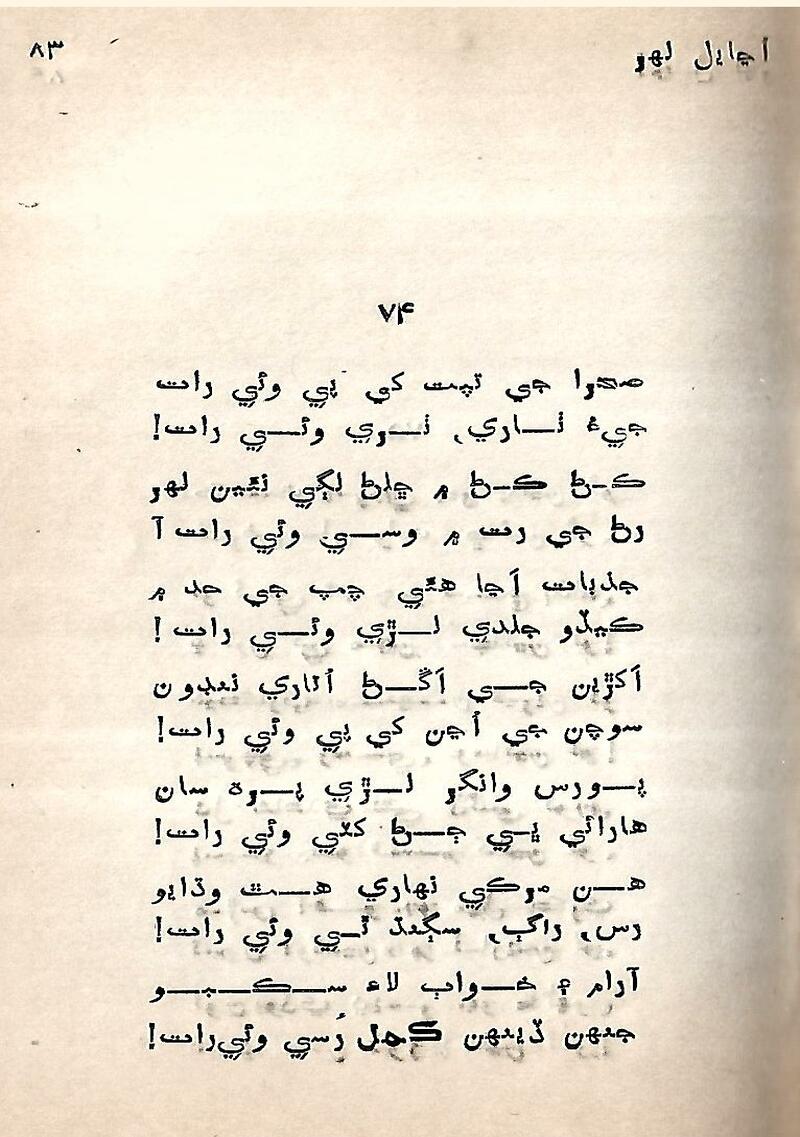 اڃايل لهر
٨٣
٧۴
صحرا جي تپت کي پي وئي رات
جيءَ ٺاري، ٺري وئي رات!
ڪڻ ڪڻ ۾ ڇلڻ لڳي نئين لهر
رڻ جي رت ۾ وسي وئي رات آ
جذبات اڃا هئي چپ جي حد ۾
ڪيڏو جلدي لڙي وئي رات!
اکڙين جي اڱڻ اُتاري ننڊون
سوچن جي اُڃن کي پي وئي رات!
پورس وانگر لڙي پره سان
هارائي ڀي ڄڻ کٽي وئي رات!
هن مرڪي نهاري هٿ وڌايو
رس، راڳ، سڳنڌ ٿي وئي رات!
آرام ۽ خواب لاءِ سڪبو
جنهن ڏينهن ڪمل رُسي وئي رات!